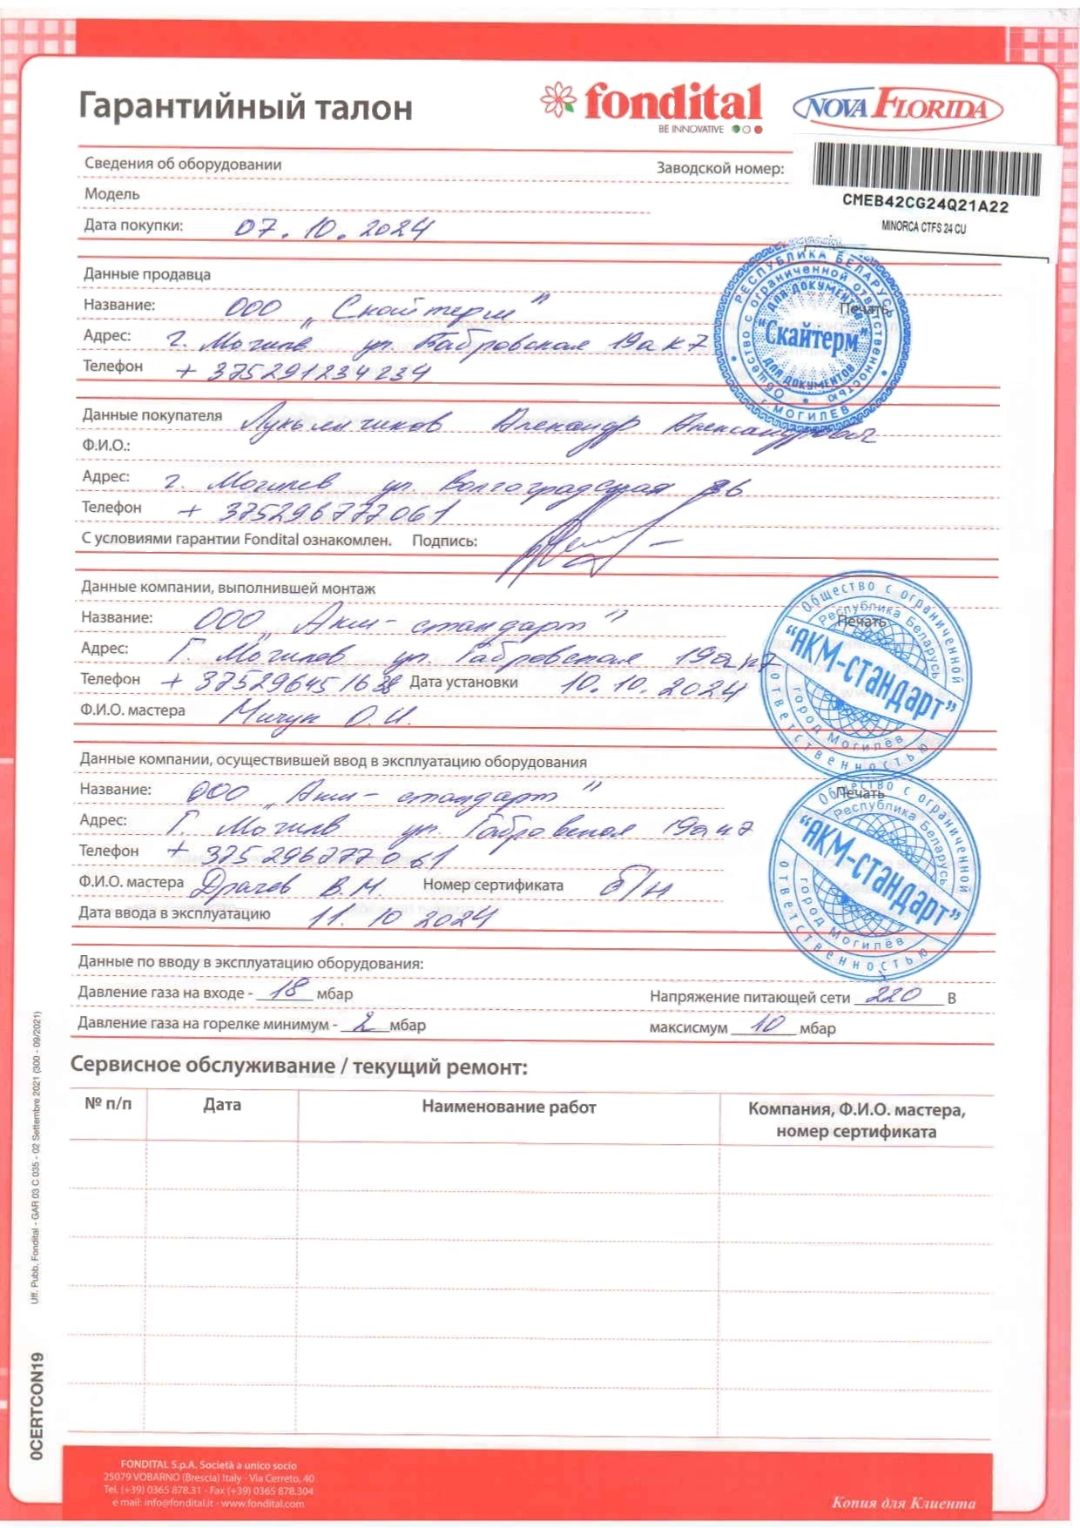 Гарантийный талон
fondital
BE INNOVATIVE
NOVA FLORIDA
Сведения об оборудовании
Заводской номер:
CMEB42CG24Q21A22
MINORCA CTFS 24 CU
Модель
Дата покупки: 07.10.2024
Данные продавца
Название: ООО "Скайтерм"
Печать
Адрес: г. Могилев ул. Габровская 19а к 7
Телефон +375291234234
РЕСПУБЛИКА БЕЛАРУСЬ
Общество с ограниченной ответственностью
ДЛЯ ДОКУМЕНТОВ
"Скайтерм"
ДЛЯ ДОКУМЕНТОВ
г. МОГИЛЕВ
Данные покупателя Александр Александрович
Ф.И.О.:
Адрес: г. Могилев ул. Волгоградская
Телефон +375296777061
С условиями гарантии Fondital ознакомлен. Подпись:
Данные компании, выполнившей монтаж
Название: ООО "Акм-стандарт"
Печать
Адрес: г. Могилев ул. Габровская 19а к7
Телефон Дата установки 10.10.2024
Ф.И.О. мастера Мичун О.И.
Общество с ограниченной ответственностью
Республика Беларусь
"АКМ-стандарт"
город Могилёв
Данные компании, осуществившей ввод в эксплуатацию оборудования
Название: ООО "Акм-стандарт"
Печать
Адрес: г. Могилев ул. Габровская 19а к7
Телефон +375296777061
Ф.И.О. мастера Драчев В.М. Номер сертификата б/н
Дата ввода в эксплуатацию 11.10 2024
Общество с ограниченной ответственностью
Республика Беларусь
"АКМ-стандарт"
город Могилёв
Данные по вводу в эксплуатацию оборудования:
Давление газа на входе - 18 мбар
Напряжение питающей сети 220 В
Давление газа на горелке минимум - 2 мбар
максисмум 10 мбар
Сервисное обслуживание / текущий ремонт:
№ п/п
Дата
Наименование работ
Компания, Ф.И.О. мастера,
номер сертификата
Uff. Pubb. Fondital - GAR 03 C 035 - 02 Settembre 2021 (300 - 09/2021)
0CERTCON19
FONDITAL S.p.A. Società a unico socio
25079 VOBARNO (Brescia) Italy - Via Cerreto, 40
Tel. (+39) 0365 878.31 - Fax (+39) 0365 878.304
e mail: info@fondital.it - www.fondital.com
Копия для Клиента